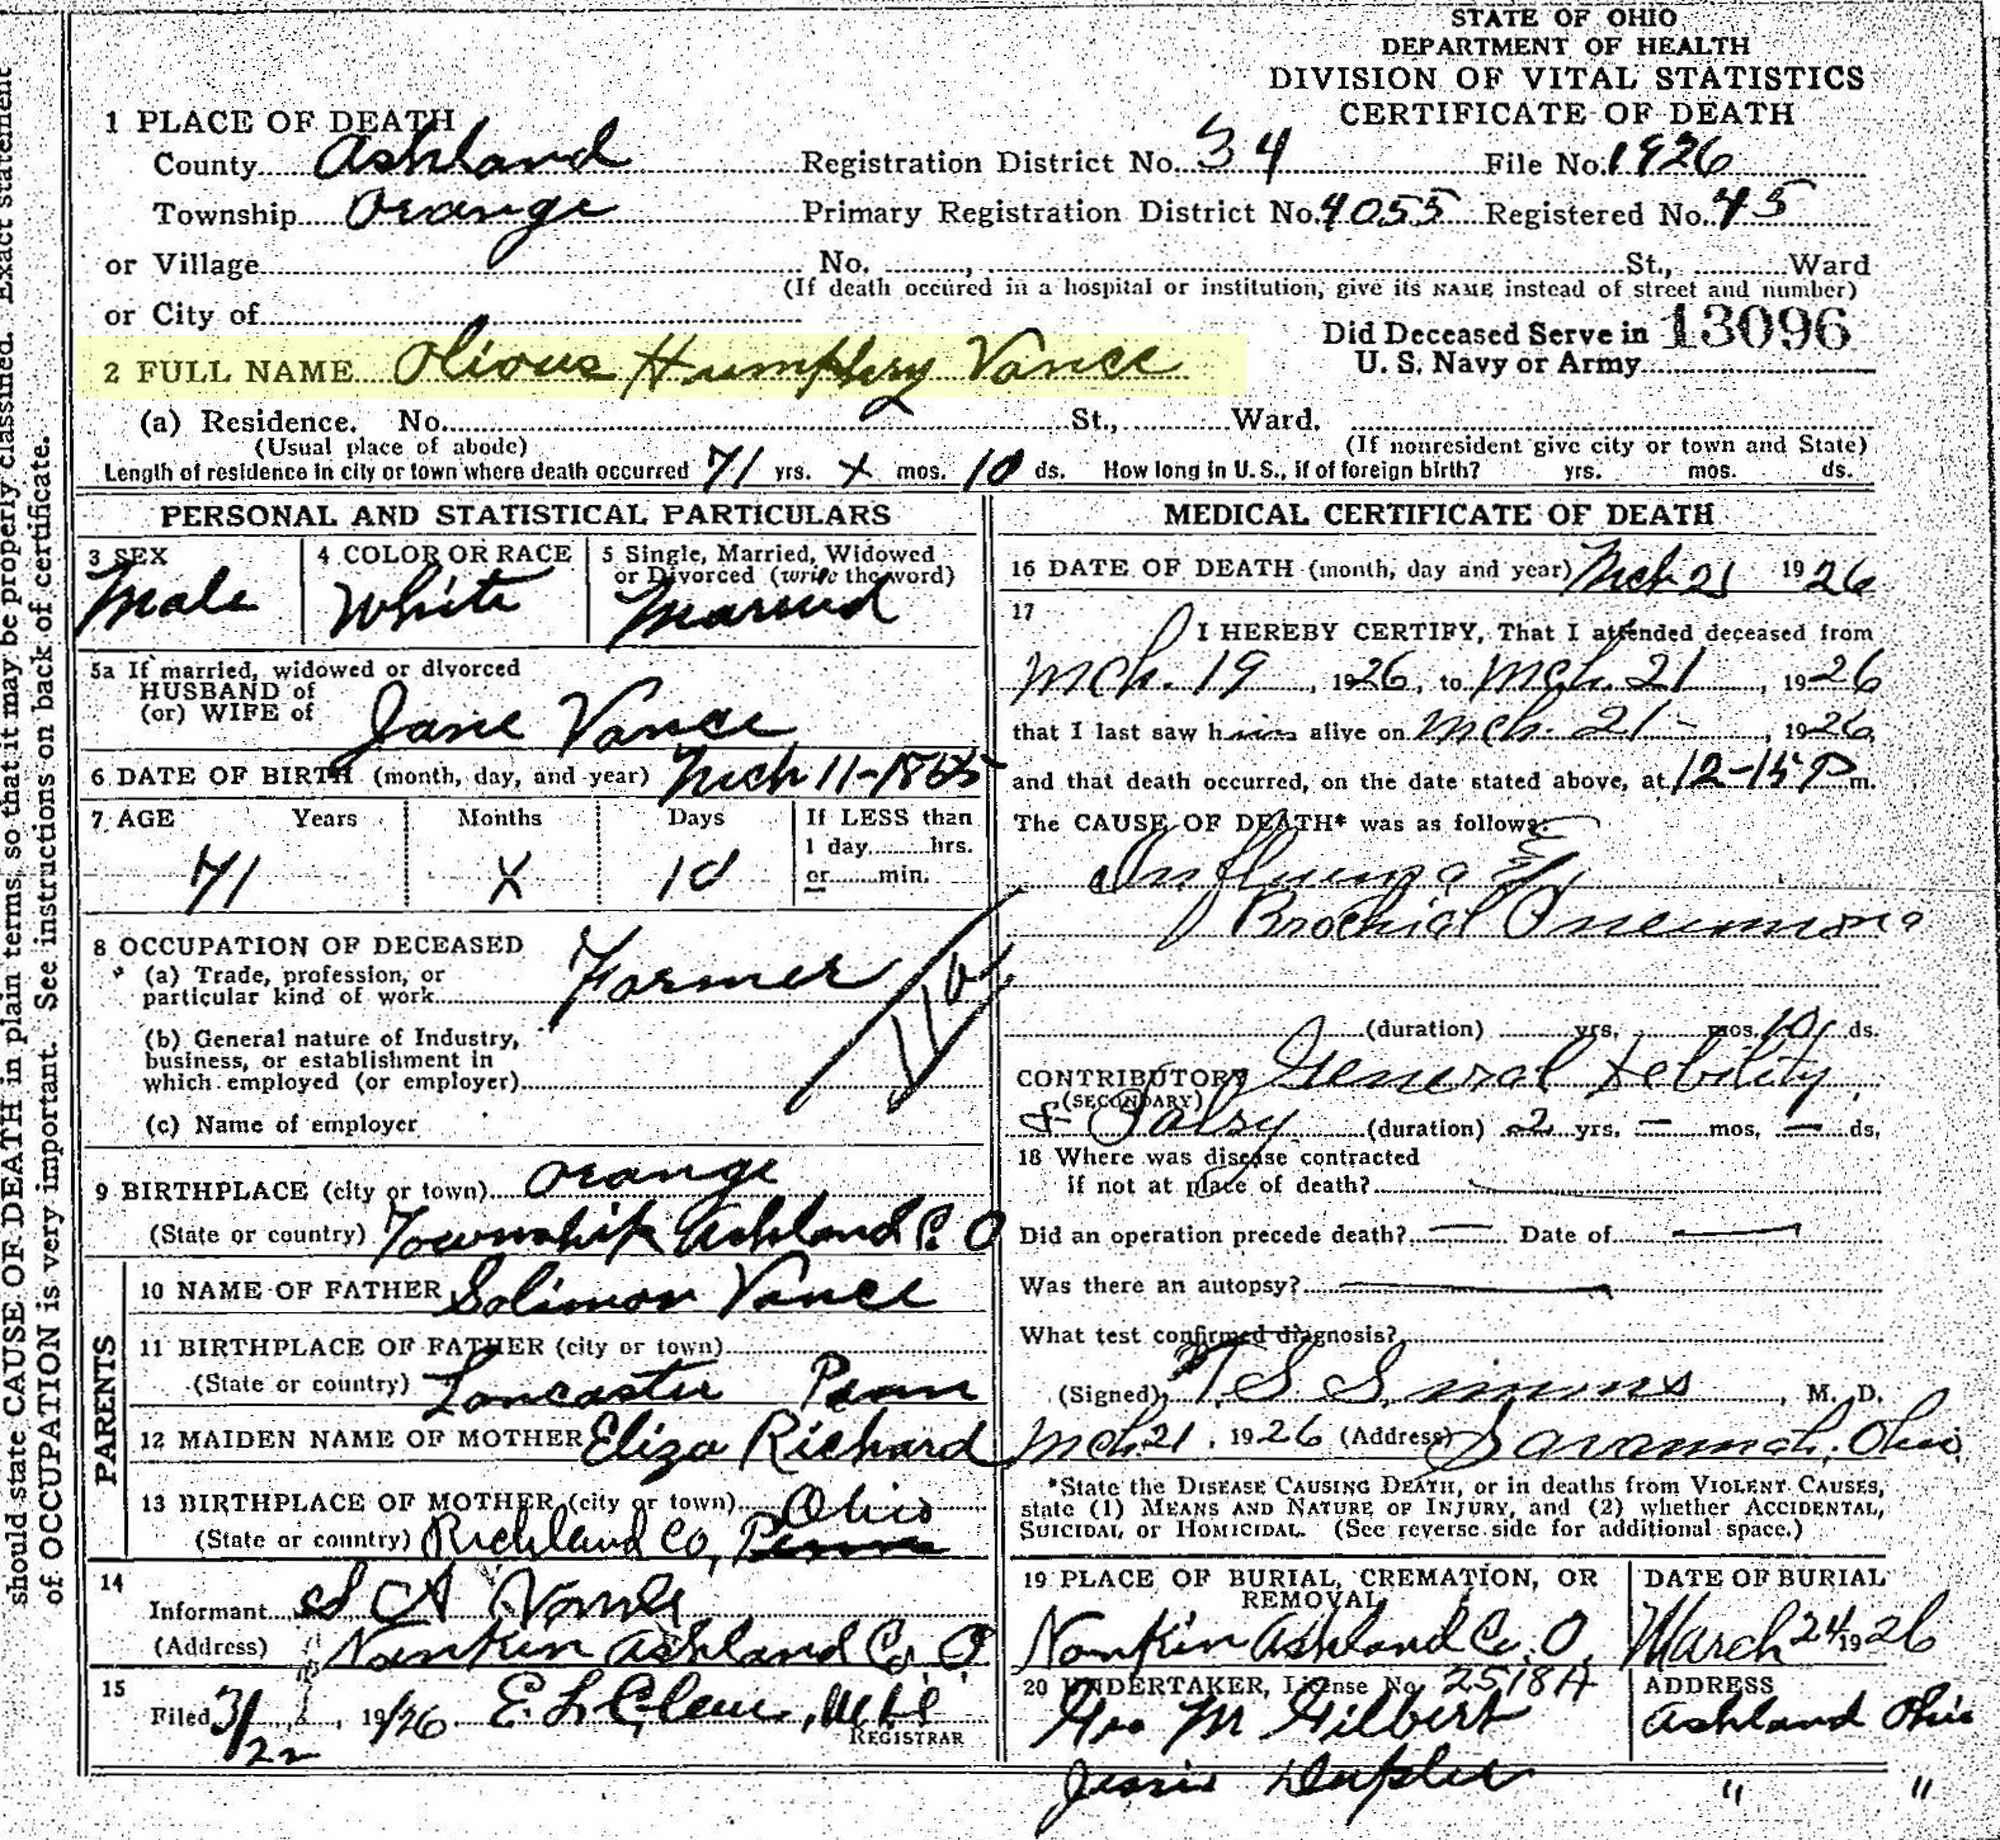 should state CAUSE OF DEATH in plain terms, so that it may be properly classified. Exact statement
of OCCUPATION is very important. See instructions on back of certificate.
STATE OF OHIO
DEPARTMENT OF HEALTH
DIVISION OF VITAL STATISTICS
CERTIFICATE OF DEATH
1 PLACE OF DEATH
County Ashland Registration District No. 34 File No. 1926
Township Orange Primary Registration District No. 4055 Registered No. 45
or Village No. , St., Ward
(If death occured in a hospital or institution, give its NAME instead of street and number)
or City of
Did Deceased Serve in 13096
U. S. Navy or Army
2 FULL NAME Olivous Humphry Vance
(a) Residence. No. St., Ward.
(Usual place of abode) (If nonresident give city or town and State)
Length of residence in city or town where death occurred 71 yrs. x mos. 10 ds. How long in U. S., if of foreign birth? yrs. mos. ds.
PERSONAL AND STATISTICAL PARTICULARS
3 SEX 4 COLOR OR RACE 5 Single, Married, Widowed
or Divorced (write the word)
Male White Married
5a If married, widowed or divorced
HUSBAND of
(or) WIFE of Jane Vance
6 DATE OF BIRTH (month, day, and year) Mch 11-1855
7 AGE Years Months Days If LESS than
1 day hrs.
71 X 10 or min.
8 OCCUPATION OF DECEASED
(a) Trade, profession, or
particular kind of work Farmer
(b) General nature of Industry,
business, or establishment in
which employed (or employer)
(c) Name of employer
9 BIRTHPLACE (city or town) Orange
(State or country) Township Ashland Co. O
PARENTS
10 NAME OF FATHER Solimon Vance
11 BIRTHPLACE OF FATHER (city or town)
(State or country) Lancaster Penn
12 MAIDEN NAME OF MOTHER Eliza Richard
13 BIRTHPLACE OF MOTHER (city or town) Ohio
(State or country) Richland Co, Penn
14
Informant S A Vance
(Address) Nankin Ashland Co. O
15
Filed 3/22, 1926 E. L. Clem,
REGISTRAR
MEDICAL CERTIFICATE OF DEATH
16 DATE OF DEATH (month, day and year) Mch 21 1926
17
I HEREBY CERTIFY, That I attended deceased from
Mch. 19, 1926, to Mch. 21, 1926
that I last saw him alive on Mch. 21-, 1926,
and that death occurred, on the date stated above, at 12-15 P m.
The CAUSE OF DEATH* was as follows:
Influenza &
Brochial Pneumona
(duration) yrs. mos. 10 ds.
CONTRIBUTORY General Debility
(SECONDARY)
& Palsy (duration) 2 yrs. – mos. – ds.
18 Where was disease contracted
if not at place of death?
Did an operation precede death? — Date of —
Was there an autopsy? —
What test confirmed diagnosis?
(Signed) T S Simons, M. D.
Mch. 21, 1926 (Address) Savannah, Ohio
*State the DISEASE CAUSING DEATH, or in deaths from VIOLENT CAUSES,
state (1) MEANS AND NATURE OF INJURY, and (2) whether ACCIDENTAL,
SUICIDAL or HOMICIDAL. (See reverse side for additional space.)
19 PLACE OF BURIAL, CREMATION, OR
REMOVAL
DATE OF BURIAL
Nankin Ashland Co. O. March 24 1926
20 UNDERTAKER, License No. 2518A ADDRESS
Geo M Gilbert Ashland Ohio
Jessie " "